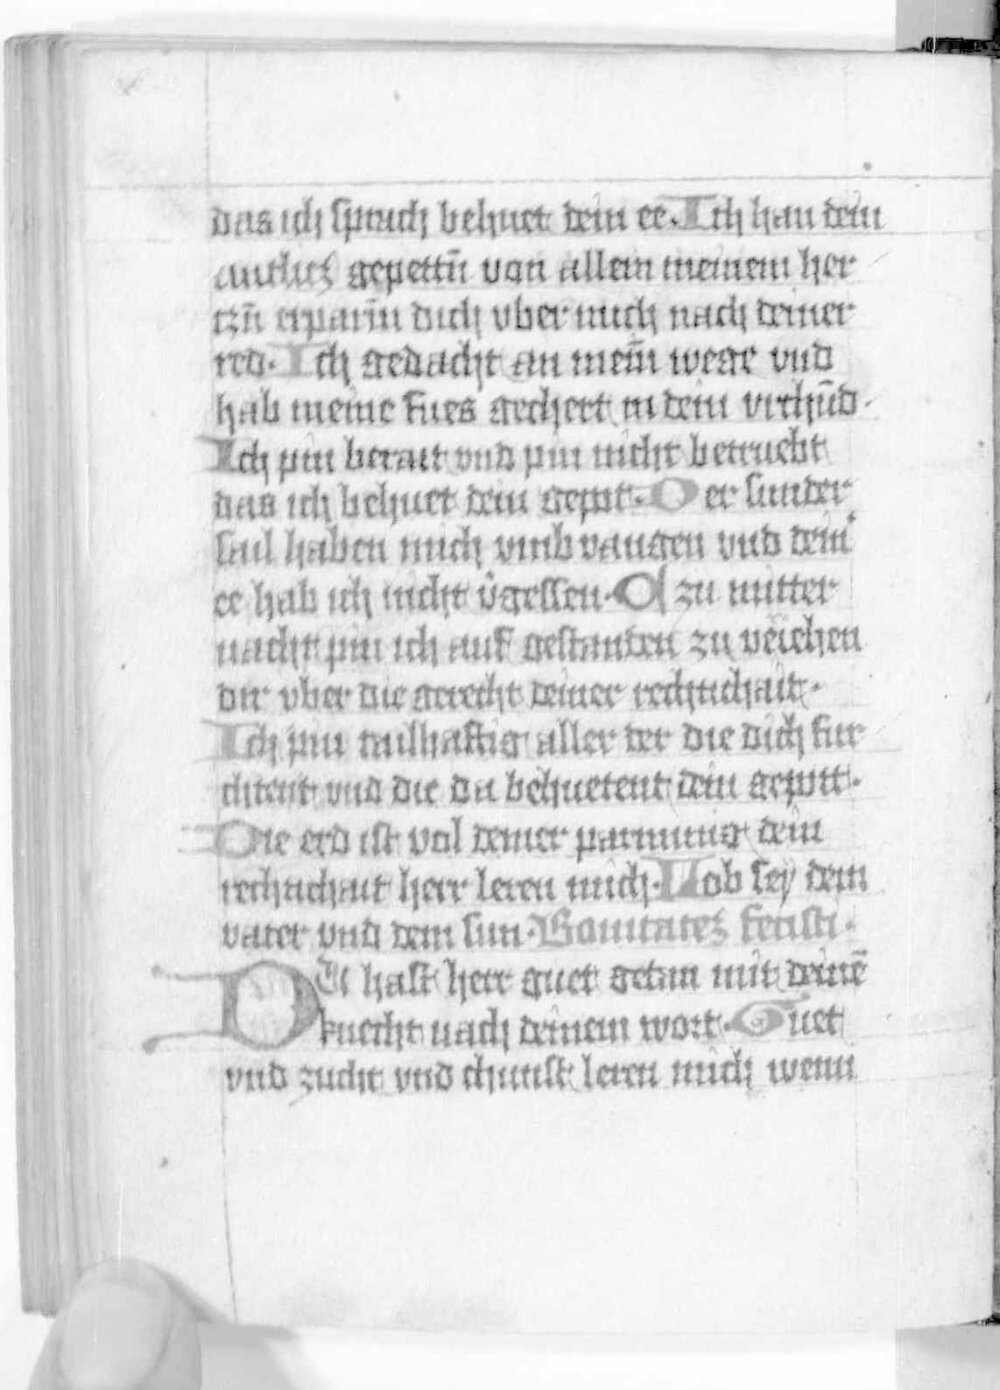 das ich sprach behuet dein ee. Ich han dein
antlutz gepettn̄ von allem meinem her
tzn̄ erparm̄ dich vber mich nach deiner
red. Ich gedacht an mein̄ wege vnd
hab meine fues gechert in dein vrchūd.
Ich pin berait vnd pin nicht betruebt
das ich behuet dein gepot. Der sunder
sail haben mich vmb vangen vnd dein
ee hab ich nicht v̄gessen. A zu mitter
nacht pin ich auf gestanden zu v̄eichen
dir vber die gerecht deiner rechtichait.
Ich pin tailhaftig aller der die dich fur
chtent vnd die da behuetent dein gepott.
Die erd ist vol deiner parmung dein
rechtichait herr leren mich. Lob sey dem
vater vnd dem sun. Bonitatez fecisti.
DU hast herr guet getan mit deinē
knecht nach deinem wort. Guet
vnd zucht vnd chunst leren mich wenn